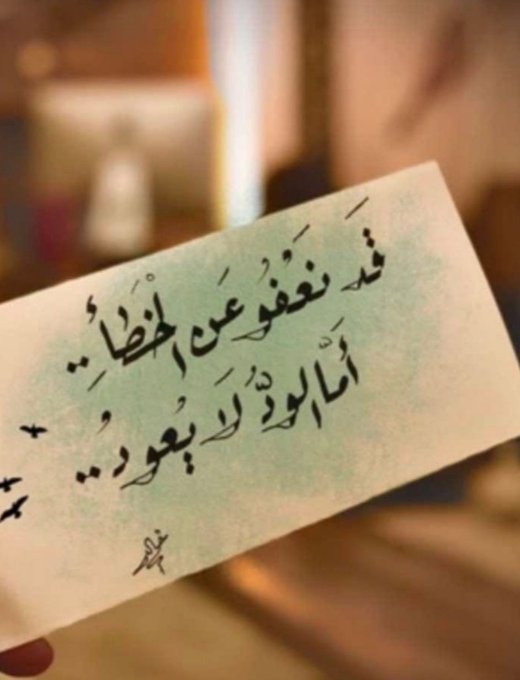 قَد نَعْفُو عَن الخْطَأِ..
أمَّا الودُّ لَا يعُودُ..